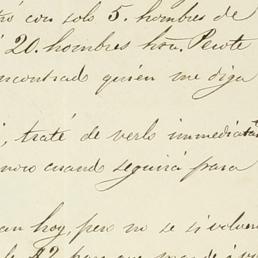 con solo 5. hombres de
20. hombres hta. Perote
encontrado quien me diga
, traté de verlo immediata
cuando seguirá para
hoy, pero no se si volver
$2 para que